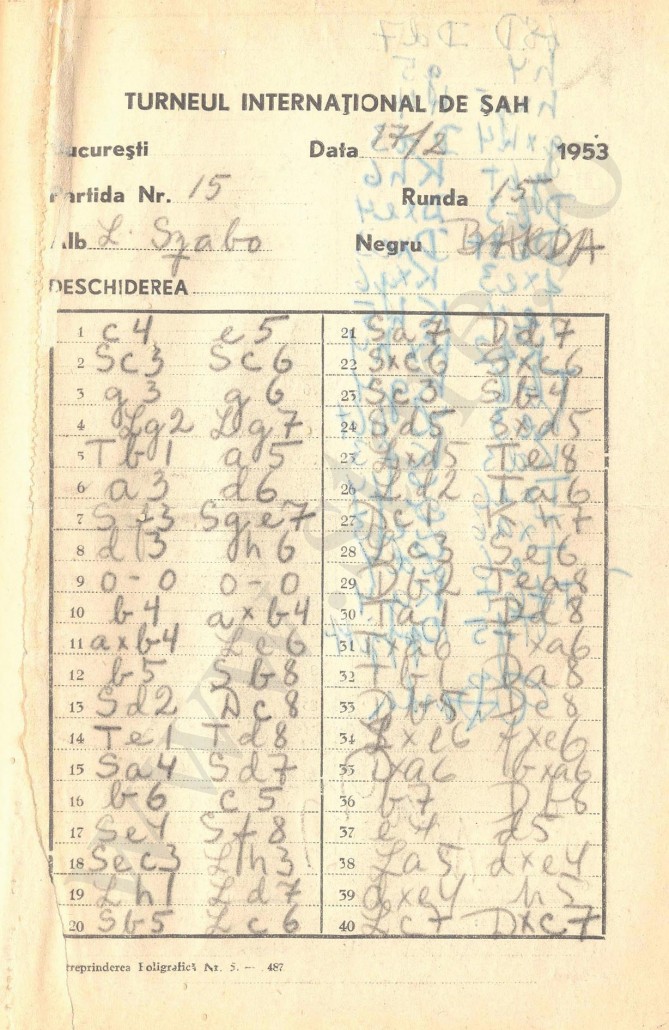 TURNEUL INTERNAŢIONAL DE ŞAH
ucureşti Data 17/2 1953
Partida Nr. 15 Runda 15
Alb L. Szabo Negru BARDA
DESCHIDEREA
1 c4 e5
2 Sc3 Sc6
3 g3 g6
4 Lg2 Lg7
5 Tb1 a5
6 a3 d6
7 Sf3 Sge7
8 d3 h6
9 0-0 0-0
10 b4 axb4
11 axb4 Le6
12 b5 Sb8
13 Sd2 Dc8
14 Te1 Td8
15 Sa4 Sd7
16 b6 c5
17 Se4 Sf8
18 Sec3 Lh3
19 Lh1 Ld7
20 Sb5 Lc6
21 Sa7 Dd7
22 Sxc6 Sxc6
23 Sc3 Sb4
24 Sd5 Sxd5
25 Lxd5 Te8
26 Ld2 Ta6
27 Dc1 Kh7
28 Lc3 Se6
29 Db2 Tea8
30 Ta1 Dd8
31 Txa6 Txa6
32 Tb1 Da8
33 Db5 De8
34 Lxe6 fxe6
35 Dxa6 bxa6
36 b7 Db8
37 e4 d5
38 La5 dxe4
39 dxe4 h5
40 Lc7 Dxc7
treprinderea Poligrafică Nr. 5. — 487